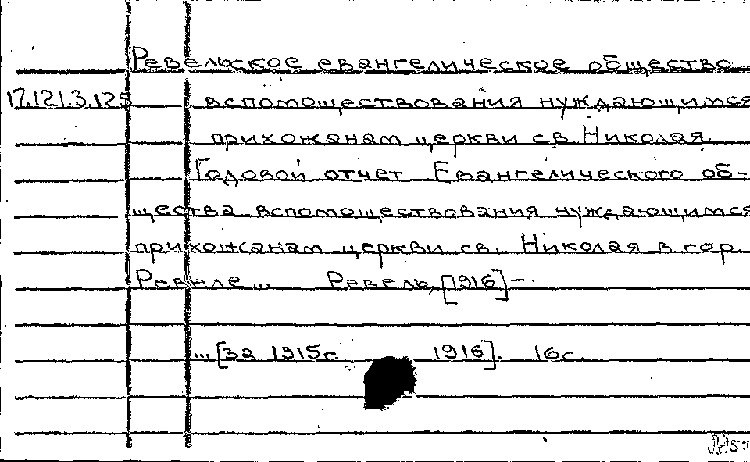 Ревельское евангелическое общество
17.121.3.125 вспомоществования нуждающимся
прихожанам церкви св. Николая.
Годовой отчет Евангелического об-
щества вспомоществования нуждающимся
прихожанам церкви св. Николая в гор.
Ревеле... Ревель, [1916] -
... [за 1915г 1916]. 16с.